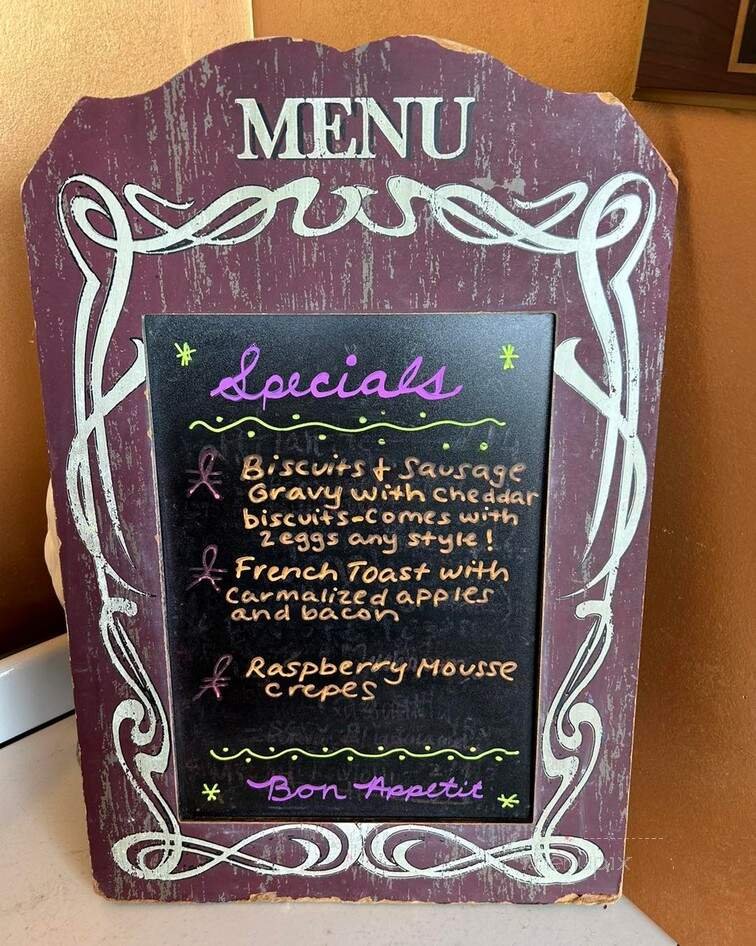 MENU
Specials
Biscuits & Sausage
Gravy with cheddar
biscuits-comes with
2 eggs any style!
French Toast with
Carmalized apples
and bacon
Raspberry Mousse
crepes
Bon Appetit